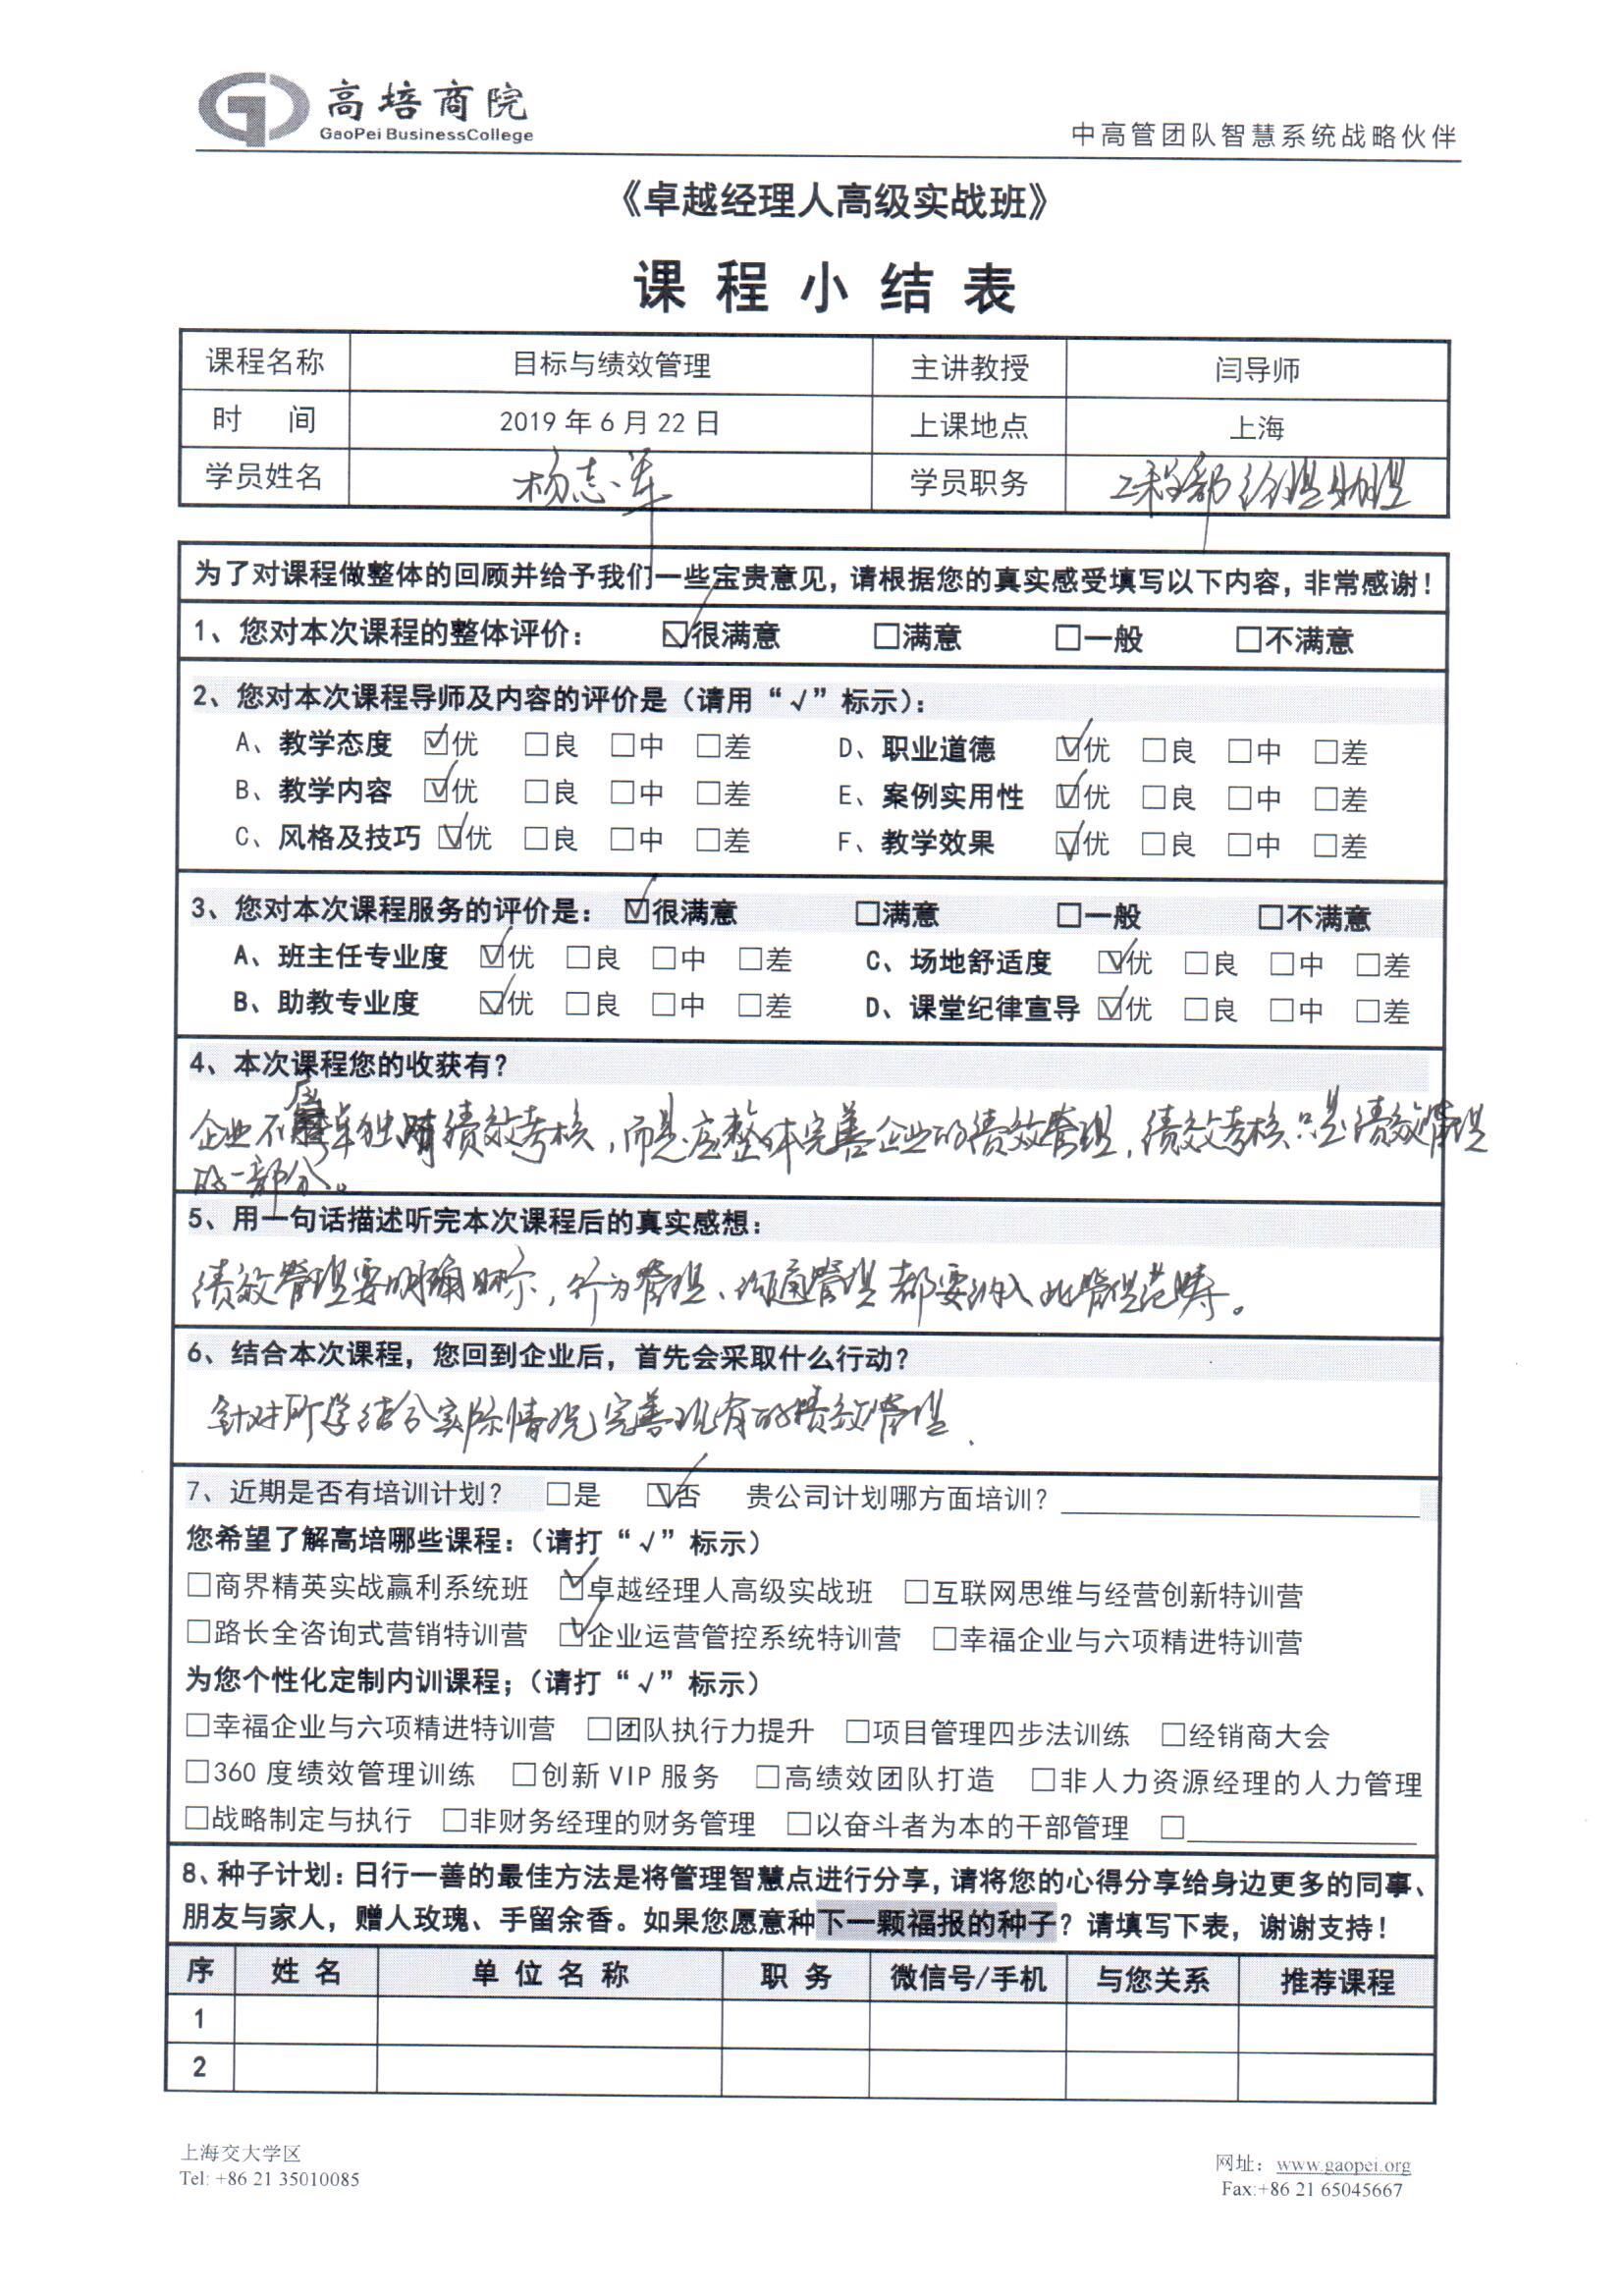 高培商院
GaoPei BusinessCollege
中高管团队智慧系统战略伙伴
《卓越经理人高级实战班》
课程小结表
课程名称 目标与绩效管理 主讲教授 闫导师
时 间 2019 年 6 月 22 日 上课地点 上海
学员姓名 杨志军 学员职务 工程部经理助理
为了对课程做整体的回顾并给予我们一些宝贵意见，请根据您的真实感受填写以下内容，非常感谢！
1、您对本次课程的整体评价： ☑很满意 □满意 □一般 □不满意
2、您对本次课程导师及内容的评价是（请用“√”标示）：
A、教学态度 ☑优 □良 □中 □差 D、职业道德 ☑优 □良 □中 □差
B、教学内容 ☑优 □良 □中 □差 E、案例实用性 ☑优 □良 □中 □差
C、风格及技巧 ☑优 □良 □中 □差 F、教学效果 ☑优 □良 □中 □差
3、您对本次课程服务的评价是： ☑很满意 □满意 □一般 □不满意
A、班主任专业度 ☑优 □良 □中 □差 C、场地舒适度 ☑优 □良 □中 □差
B、助教专业度 ☑优 □良 □中 □差 D、课堂纪律宣导 ☑优 □良 □中 □差
4、本次课程您的收获有？
企业不应单独有绩效考核，而是应整体完善企业的绩效管理，绩效考核只是绩效管理
的一部分。
5、用一句话描述听完本次课程后的真实感想：
绩效管理要明确目标，行为管理、沟通管理都要纳入此管理范畴。
6、结合本次课程，您回到企业后，首先会采取什么行动？
针对所学结合实际情况完善现有的绩效管理.
7、近期是否有培训计划？ □是 ☑否 贵公司计划哪方面培训？
您希望了解高培哪些课程：（请打“√”标示）
□商界精英实战赢利系统班 ☑卓越经理人高级实战班 □互联网思维与经营创新特训营
□路长全咨询式营销特训营 ☑企业运营管控系统特训营 □幸福企业与六项精进特训营
为您个性化定制内训课程；（请打“√”标示）
□幸福企业与六项精进特训营 □团队执行力提升 □项目管理四步法训练 □经销商大会
□360 度绩效管理训练 □创新 VIP 服务 □高绩效团队打造 □非人力资源经理的人力管理
□战略制定与执行 □非财务经理的财务管理 □以奋斗者为本的干部管理 □
8、种子计划：日行一善的最佳方法是将管理智慧点进行分享，请将您的心得分享给身边更多的同事、
朋友与家人，赠人玫瑰、手留余香。如果您愿意种下一颗福报的种子？请填写下表，谢谢支持！
序 姓 名 单 位 名 称 职 务 微信号/手机 与您关系 推荐课程
1
2
上海交大学区
网址：www.gaopei.org
Tel: +86 21 35010085
Fax:+86 21 65045667